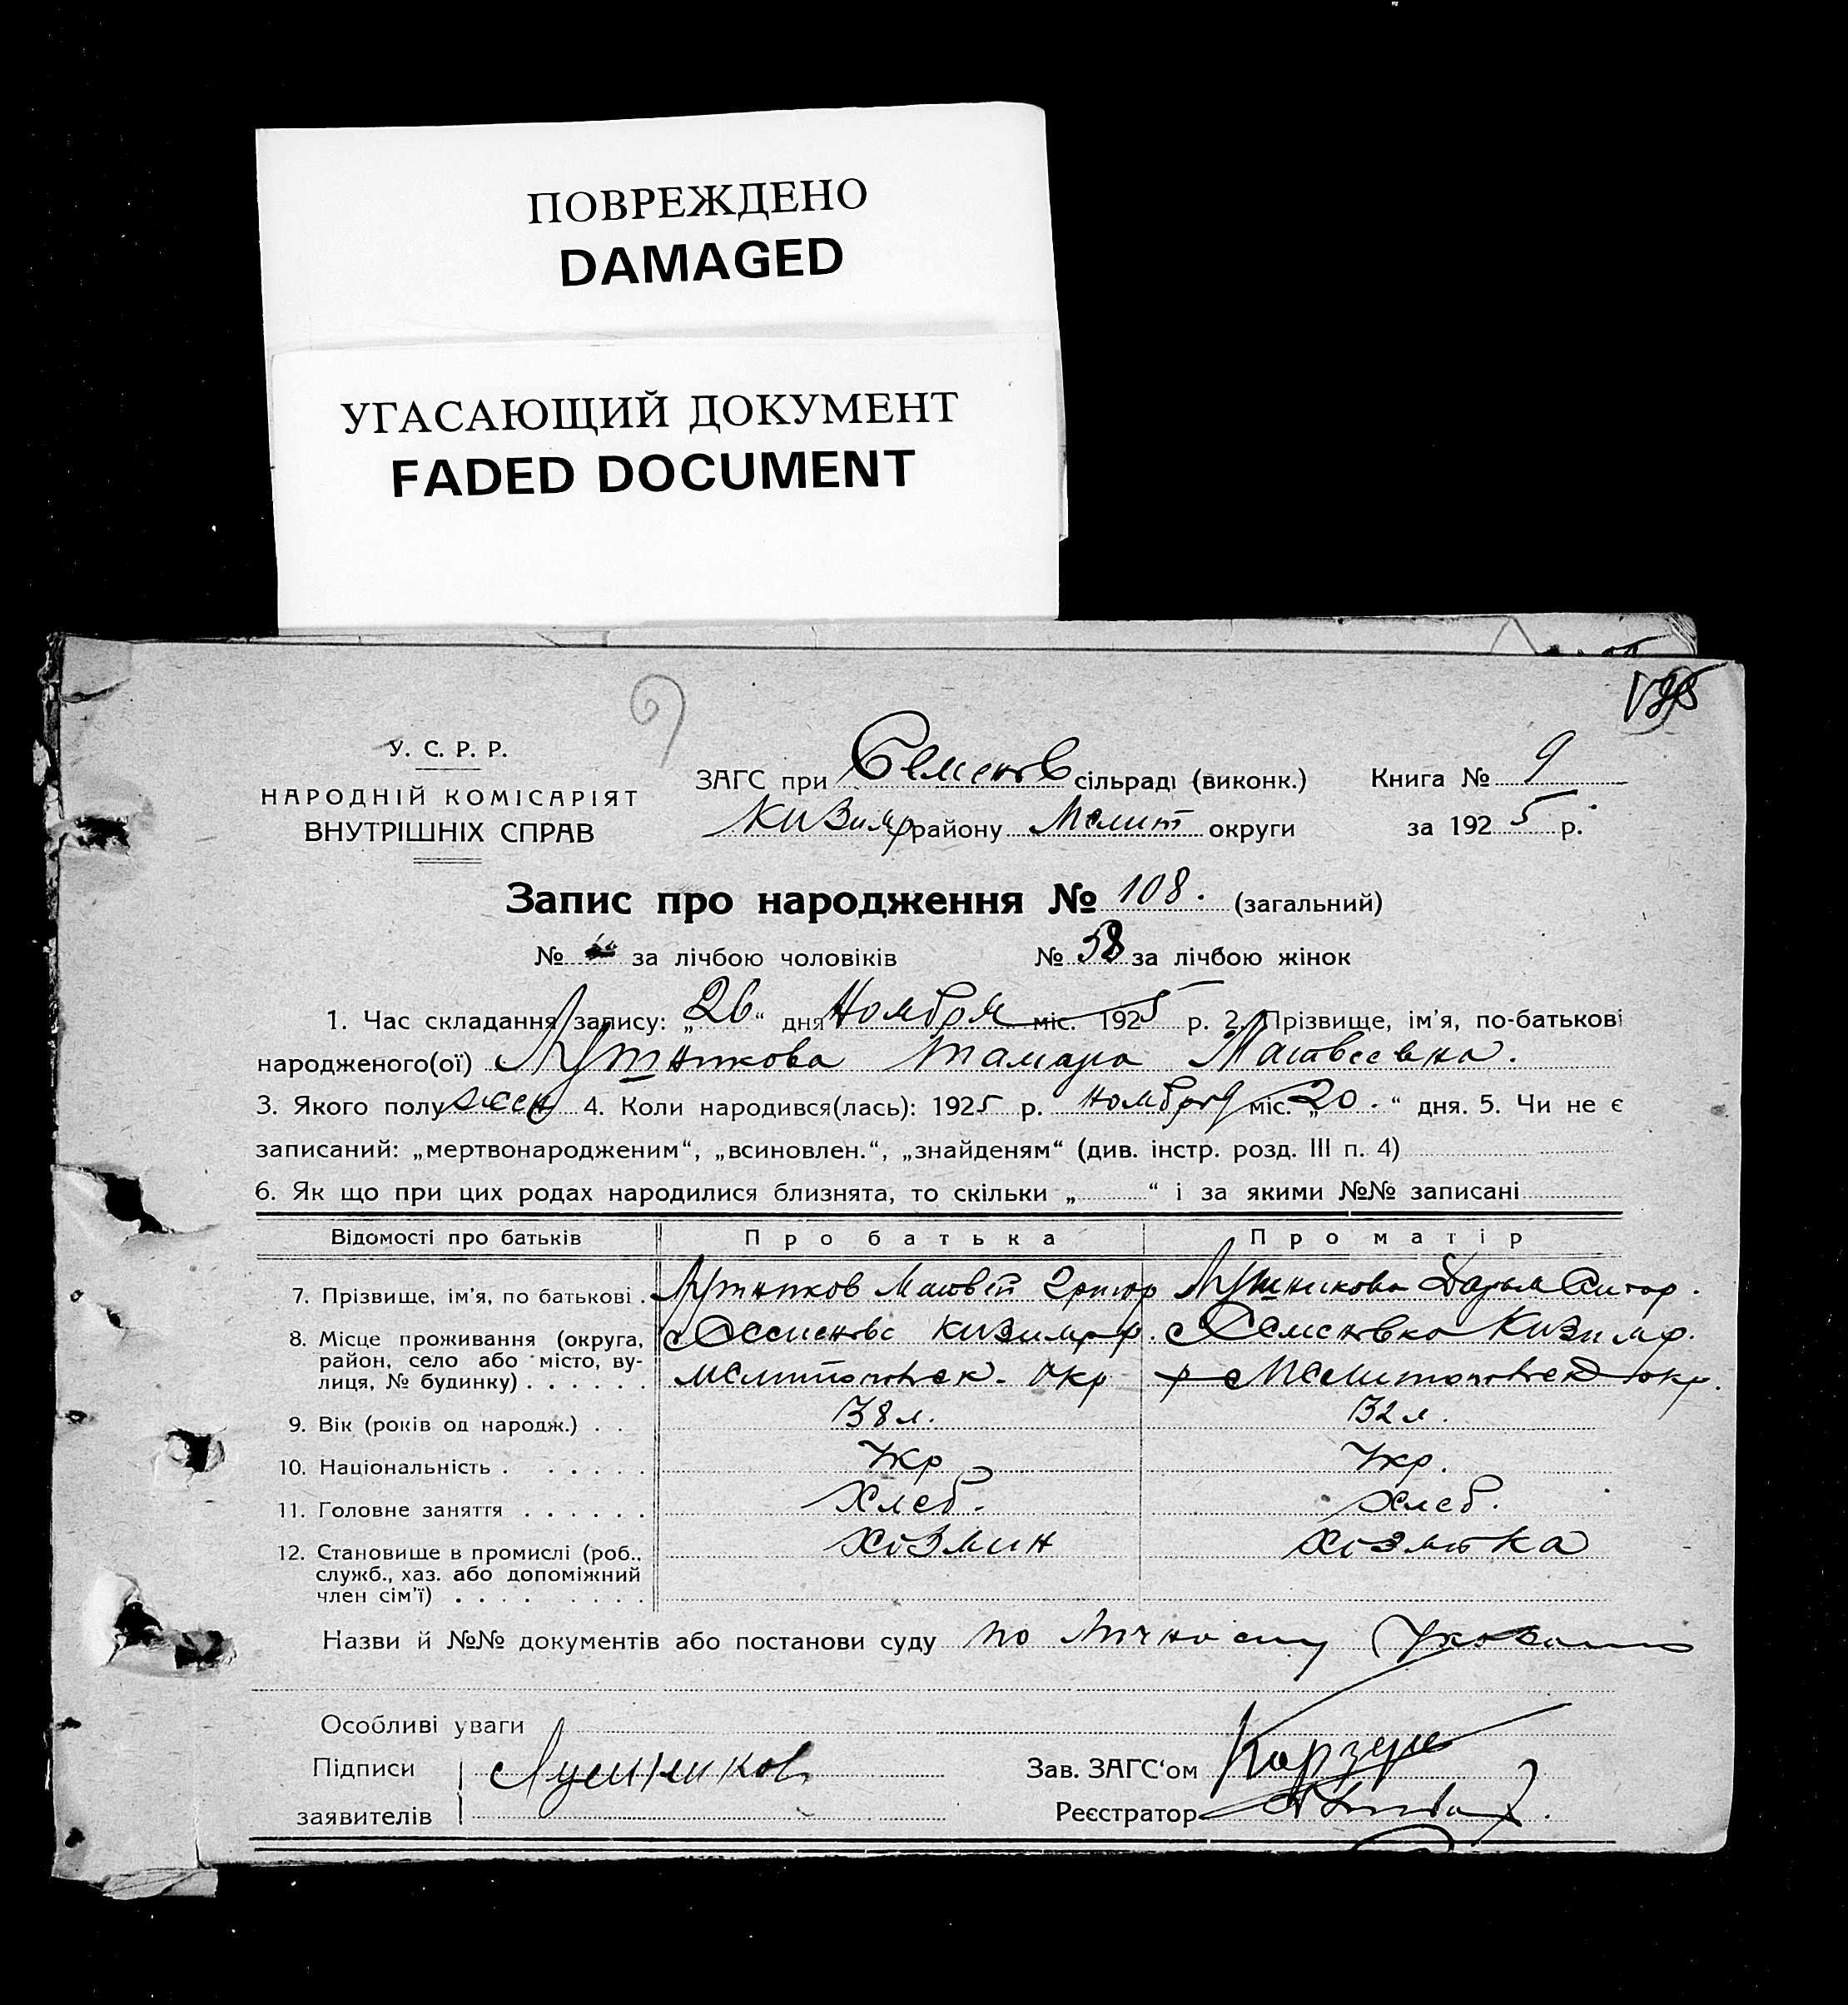 ПОВРЕЖДЕНО
DAMAGED
УГАСАЮЩИЙ ДОКУМЕНТ
FADED DOCUMENT
У. С. Р. Р.
НАРОДНІЙ КОМІСАРІЯТ
ВНУТРІШНІХ СПРАВ
ЗАГС при Семенов сільраді (виконк.) Книга № 9
Кизияр району Мелит округи за 1925 р.
Запис про народження № 108. (загальний)
№ за лічбою чоловіків № 58 за лічбою жінок
1. Час складання запису: „26“ дня Ноября міс. 1925 р. 2. Прізвище, ім'я, по-батькові
народженого(ої) Лушникова Тамара Матвеевна.
3. Якого полу жен 4. Коли народився(лась): 1925 р. ноября міс. „20.“ дня. 5. Чи не є
записаний: „мертвонародженим“, „всиновлен.“, „знайденям“ (див. інстр. розд. III п. 4)
6. Як що при цих родах народилися близнята, то скільки „ “ і за якими №№ записані
Відомості про батьків Про батька Про матір
7. Прізвище, ім'я, по батькові . Лушников Матвей Григор Лушникова Дарья
8. Місце проживання (округа, с Семеновка Кизияр р. с Семеновка Кизияр.
район, село або місто, ву-
лиця, № будинку) . . . . . . Мелитопольск. Окр р Мелитопольск окр.
9. Вік (років од народж.) . . 38 л. 32 л.
10. Національність . . . . . . Укр Укр.
11. Головне заняття . . . . . . Хлеб. Хлеб.
12. Становище в промислі (роб., хозяин хозяйка
служб., хаз. або допоміжний
член сім'ї) . . . . . . . .
Назви й №№ документів або постанови суду по личному
Особливі уваги
Підписи Лушников Зав. ЗАГС'ом
заявителів Реєстратор